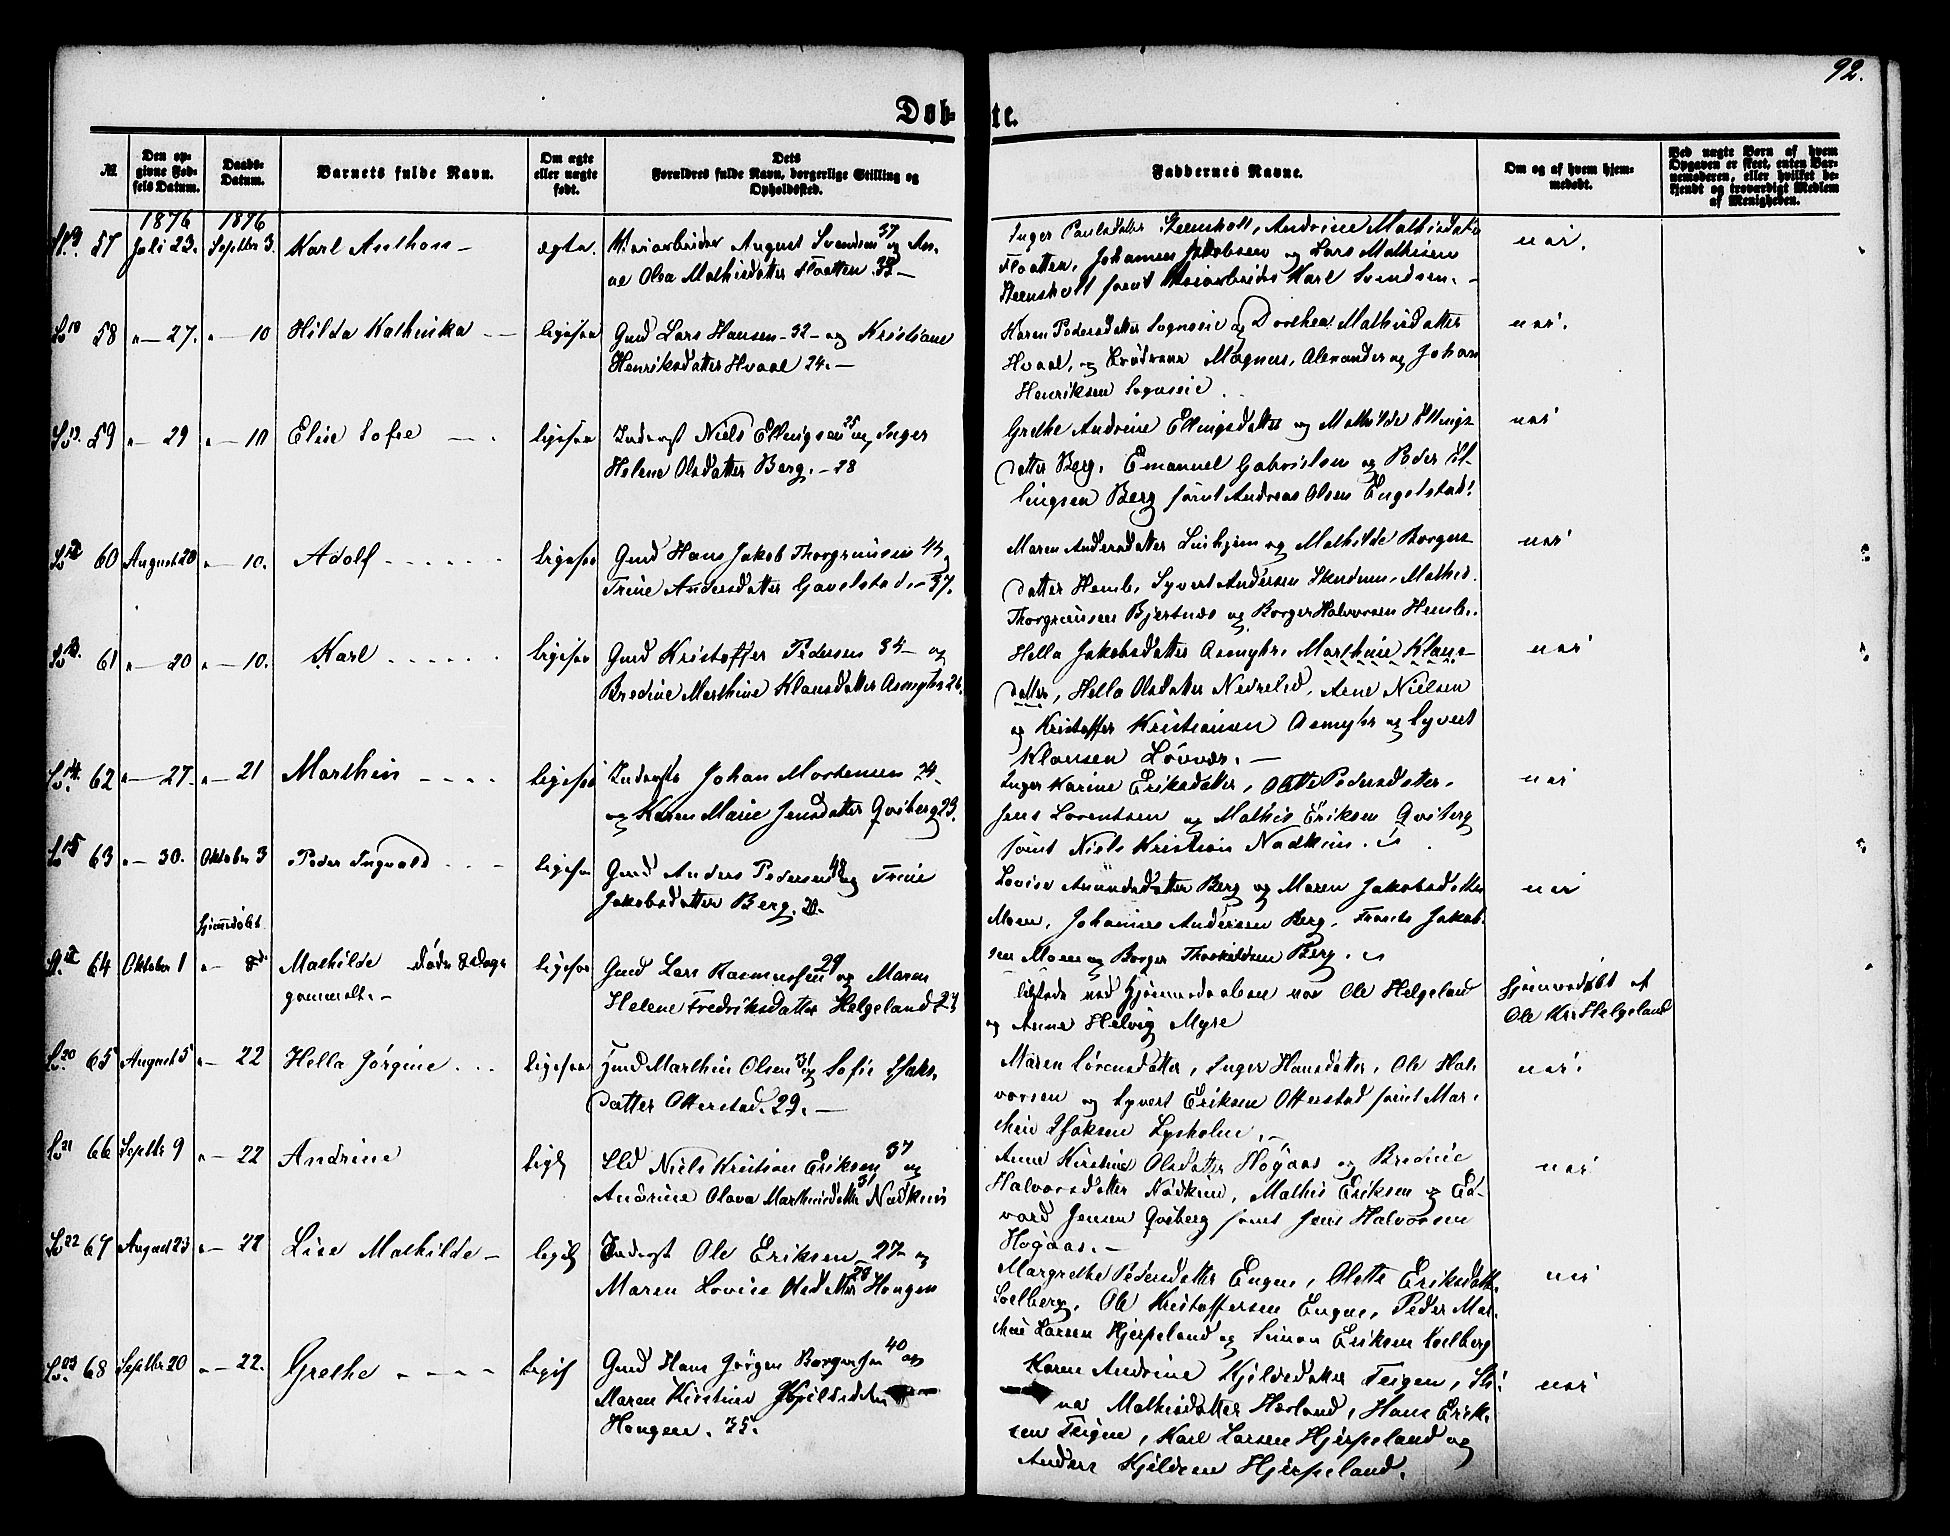 92.
Døb- te.
№
Den op-
givne Fød-
sels Datum.
Daabs-
Datum.
Barnets fulde Navn.
Om ægte
eller uægte
født.
Dets
Forældres fulde Navn, borgerlige Stilling og
Opholdssted.
Faddernes Navne.
Om og af hvem hjem-
medøbt.
Ved uægte Børn af hvem
Opgaven er skeet, enten Bar-
nemoderen, eller hvilket be-
kjendt og troværdigt Medlem
af Menigheden.
1876 1876
57 Juli 23. Septbr 3. Karl Anthon — ægte. August Svendsen 37 og An-
ne Olea Mathisdatter Floatten
Inger Paulsdatter Steensholt, Andrine Mathisdatter
Floatten, Johannes Jakobsen og Lars Mathisen
Steensholt samt Karl Svendsen. —
nei.
58 " — 27. " — 10 Hilda Kathinka — ligesaa Gmd Lars Hansen — 32 — og Kristiane
Henriksdatter Hvaal 24. —
Karen Pedersdatter og Dorthea Mathisdatter
Hvaal, og Magnus, Alexander og Johan
Henriksen
nei.
59 " — 29 " — 10 Elise Sofie — ligesaa Inderst Niels Ellingsen 25 og Inger
Helene Olsdatter Berg. — 28
Grethe Andrine Ellingsdatter og Mathilde Ellings-
datter Berg, Emanuel Gabrielsen og Peder El-
lingsen Berg samt Andreas Olsen Engelstad.
nei
60 August 20 " — 10. Adolf ligesaa Gmd Hans Jakob Thorgrimsen 43
Trine Andersdatter Gavelstad. — 37.
Maren Andersdatter og Mathilde Borgers-
datter Hemb, Syvert Andersen Skerdmo, Mathis
Thorgrimsen Bjertnæs og Borger Halvorsen Hemb.
nei
61 " — 20 " — 10. Karl ligesaa Gmd Kristoffer Pedersen 34 — og
Bredine Marthine Klausdatter Asmyhr 26.
Hella Jakobsdatter Asmyhr, Marthine Klaus-
datter, Hella Olsdatter Nedrelid, Arne Nielsen
og Kristoffer Kristiansen Asmyhr og Syvert
Klausen Løvaas. —
nei
62 " — 27. " — 21 Marthin ligesaa Inderste Johan Mortensen 24
og Karen Marie Jensdatter Qviberg 23.
Inger Karine Eriksdatter, Olette Pedersdatter,
Jens Lorentsen og Mathis Eriksen Qviberg
samt Niels Kristian Nadkim.
nei
63 " — 30. Oktober 3 Peder Ingvald ligesaa Gmd Anders Pedersen 48 og Trine
Jakobsdatter Berg.
Lovise Amundsdatter Berg og Maren Jakobsdatter
Moen, Johannes Andersen Berg, Frants Jakob-
sen Moen og Borger Thorkildsen Berg.
nei
hjemmedøbt
64 Oktober 1 Mathilde døde 8 Dage
gammelt. —
ligesaa Gmd Lars Rasmussen 29 og Maren
Helene Fredriksdatter Helgeland 24
Tilstede ved Hjemmedaaben var Ole Helgeland
og Anne Helvig Myre
Hjemmedøbt af
Ole Kr. Helgeland
65 August 5 " — 22 Hella Jørgine ligesaa Gmd Marthin Olsen 31 og Sofie Isaks-
datter Otterstad. 29. —
Maren Sørensdatter, Inger Hansdatter, Ole Hal-
vorsen og Syvert Eriksen Otterstad samt Mar-
thin Isaksen Lysholm. —
nei.
66 Septbr 9 " — 22 Andrine lige Niels Kristian Eriksen 37 og
Andrine Olava Marthinsdatter 31 Nadkim
Anne Kirstine Olsdatter Høgaas og Bredine
Halvorsdatter Nadkim, Mathis Eriksen og Ed-
vard Jensen Qviberg samt Jens Halvorsen
Høgaas. —
nei
67 August 23 " — 22 Lise Mathilde — lige Inderst Ole Eriksen 27 og
Maren Lovise Olsdatter 28 Hougen
Margrethe Pedersdatter Engene, Olette Eriksdatter
Solberg, Ole Kristoffersen Engene, Peder Mar-
thin Larsen Hjerpeland og Simon Eriksen Solberg
nei
68 Septbr 20 " — 22. Grethe lige Gmd Hans Jørgen Borgersen 40 og
Maren Kirstine Kjeldsdatter
Hougen. 35.
Karen Andrine Kjeldsdatter Teigen, Sti-
na Mathisdatter Hørland, Hans Erik-
sen Teigen, Karl Larsen Hjerpeland og
Anders Kjeldsen Hjerpeland.
nei